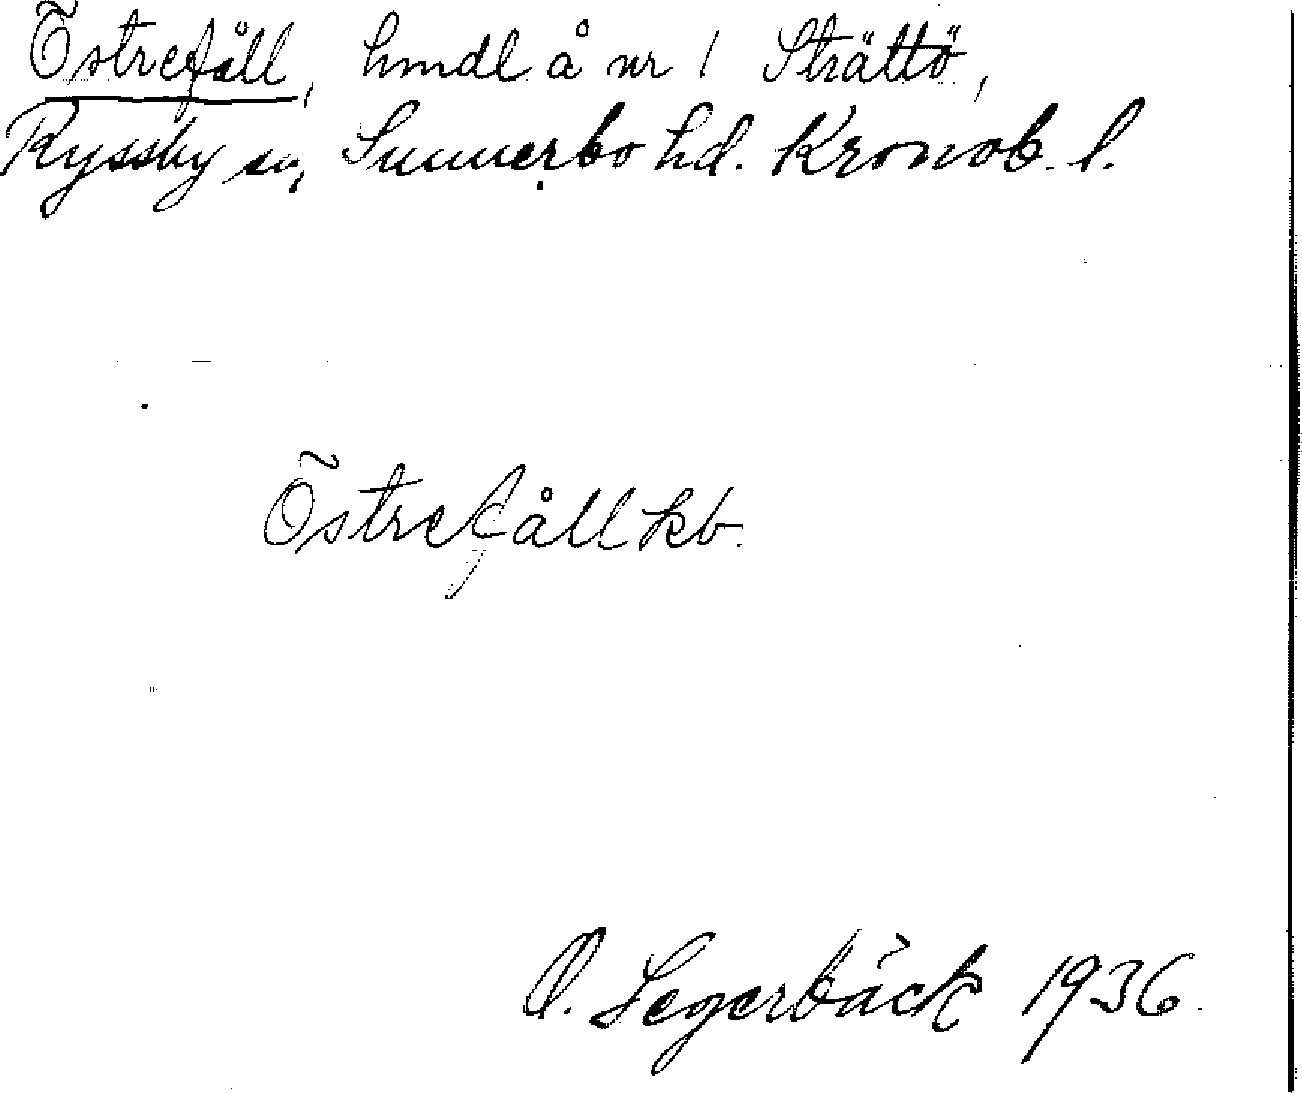 Östrefåll, hmdl å nr 1 Strättö,
Ryssby sn, Sunnerbo hd. Kronob. l.
Östrefåll kb.
O. Segerbäck 1936.